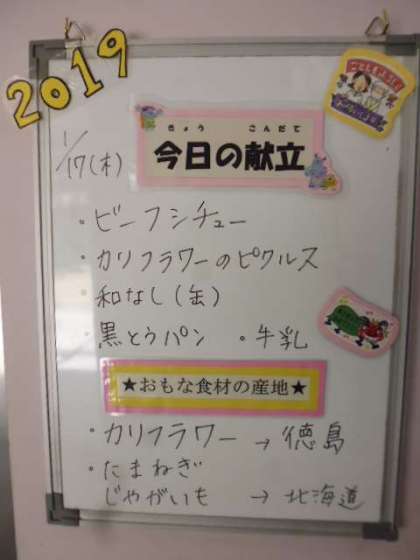 2019
1/17(木)
きょう こんだて
今日の献立
・ビーフシチュー
・カリフラワーのピクルス
・和なし(缶)
・黒とうパン ・牛乳
★おもな食材の産地★
・カリフラワー → 徳島
・たまねぎ
じゃがいも → 北海道